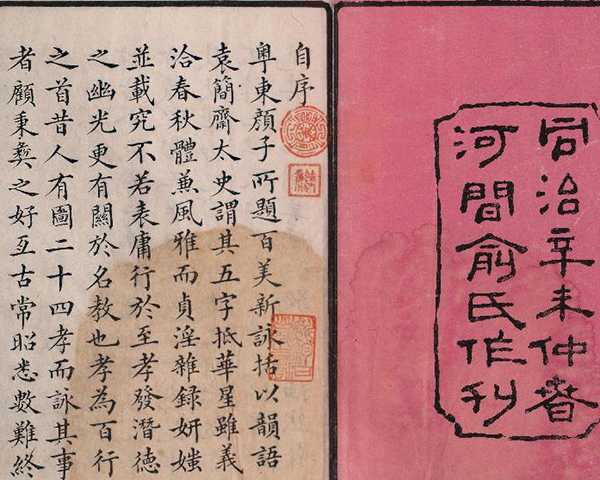 同治辛未仲春
河間俞氏作刊
自序
粵東顏子所題百美新詠括以韻語
袁簡齋太史謂其五字抵華星雖義
洽春秋體兼風雅而貞淫雜録妍媸
並載究不若表庸行於至孝發潛德
之幽光更有關於名教也孝為百行
之首昔人有圖二十四孝而詠其事
者顧秉彝之好亙古常昭悉數難終